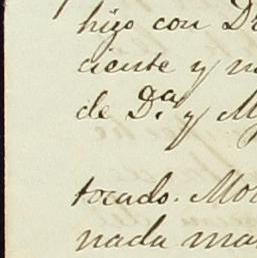 hizo con D
ciente y
de D.ª y M
tocado. Mo
nada ma